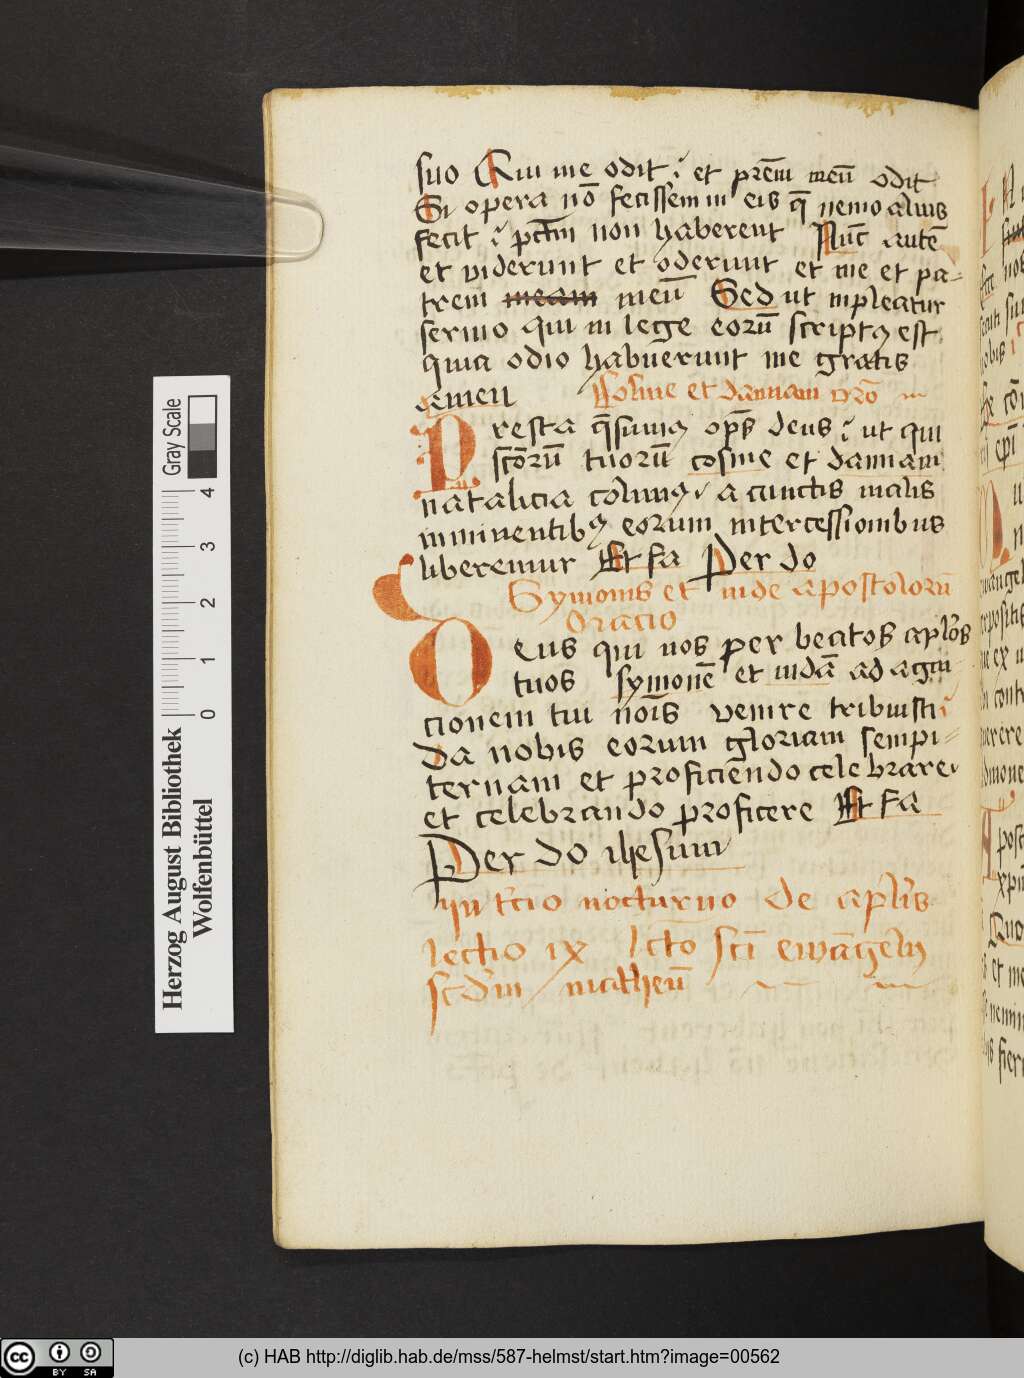 suo Qui me odit et prēm meū odit
Si opera nō fecissem in eis q̄ nemo alius
fecit pctm̄ non haberent Nūc autē
et viderunt et oderunt et me et pa-
trem meam meū Sed ut inpleatur
sermo qui in lege eorū scriptꝯ est
quia odio habuerunt me gratis
amen Cosme et damiani oro
Presta q̄sumꝯ op̄s deus ut qui
sc̄torū tuorū cosme et damiani
natalicia colimꝯ a cunctis malis
imminentibꝯ eorum intercessionibus
liberemur Et fa Per do
Symonis et iude apostolorū
Oracio
Deus qui nos per beatos apl̄os
tuos symonē et iudā ad agni-
cionem tui nōis venire tribuisti
da nobis eorum gloriam sempi-
ternam et proficiendo celebrare
et celebrando proficere Et fa
Per do ihesum
In tercio nocturno de apl̄is
lectio ix lcto sc̄i ewāgelij
scd̄m matheū
Herzog August Bibliothek
Wolfenbüttel
Gray Scale
0 1 2 3 4
cc BY SA
(c) HAB http://diglib.hab.de/mss/587-helmst/start.htm?image=00562